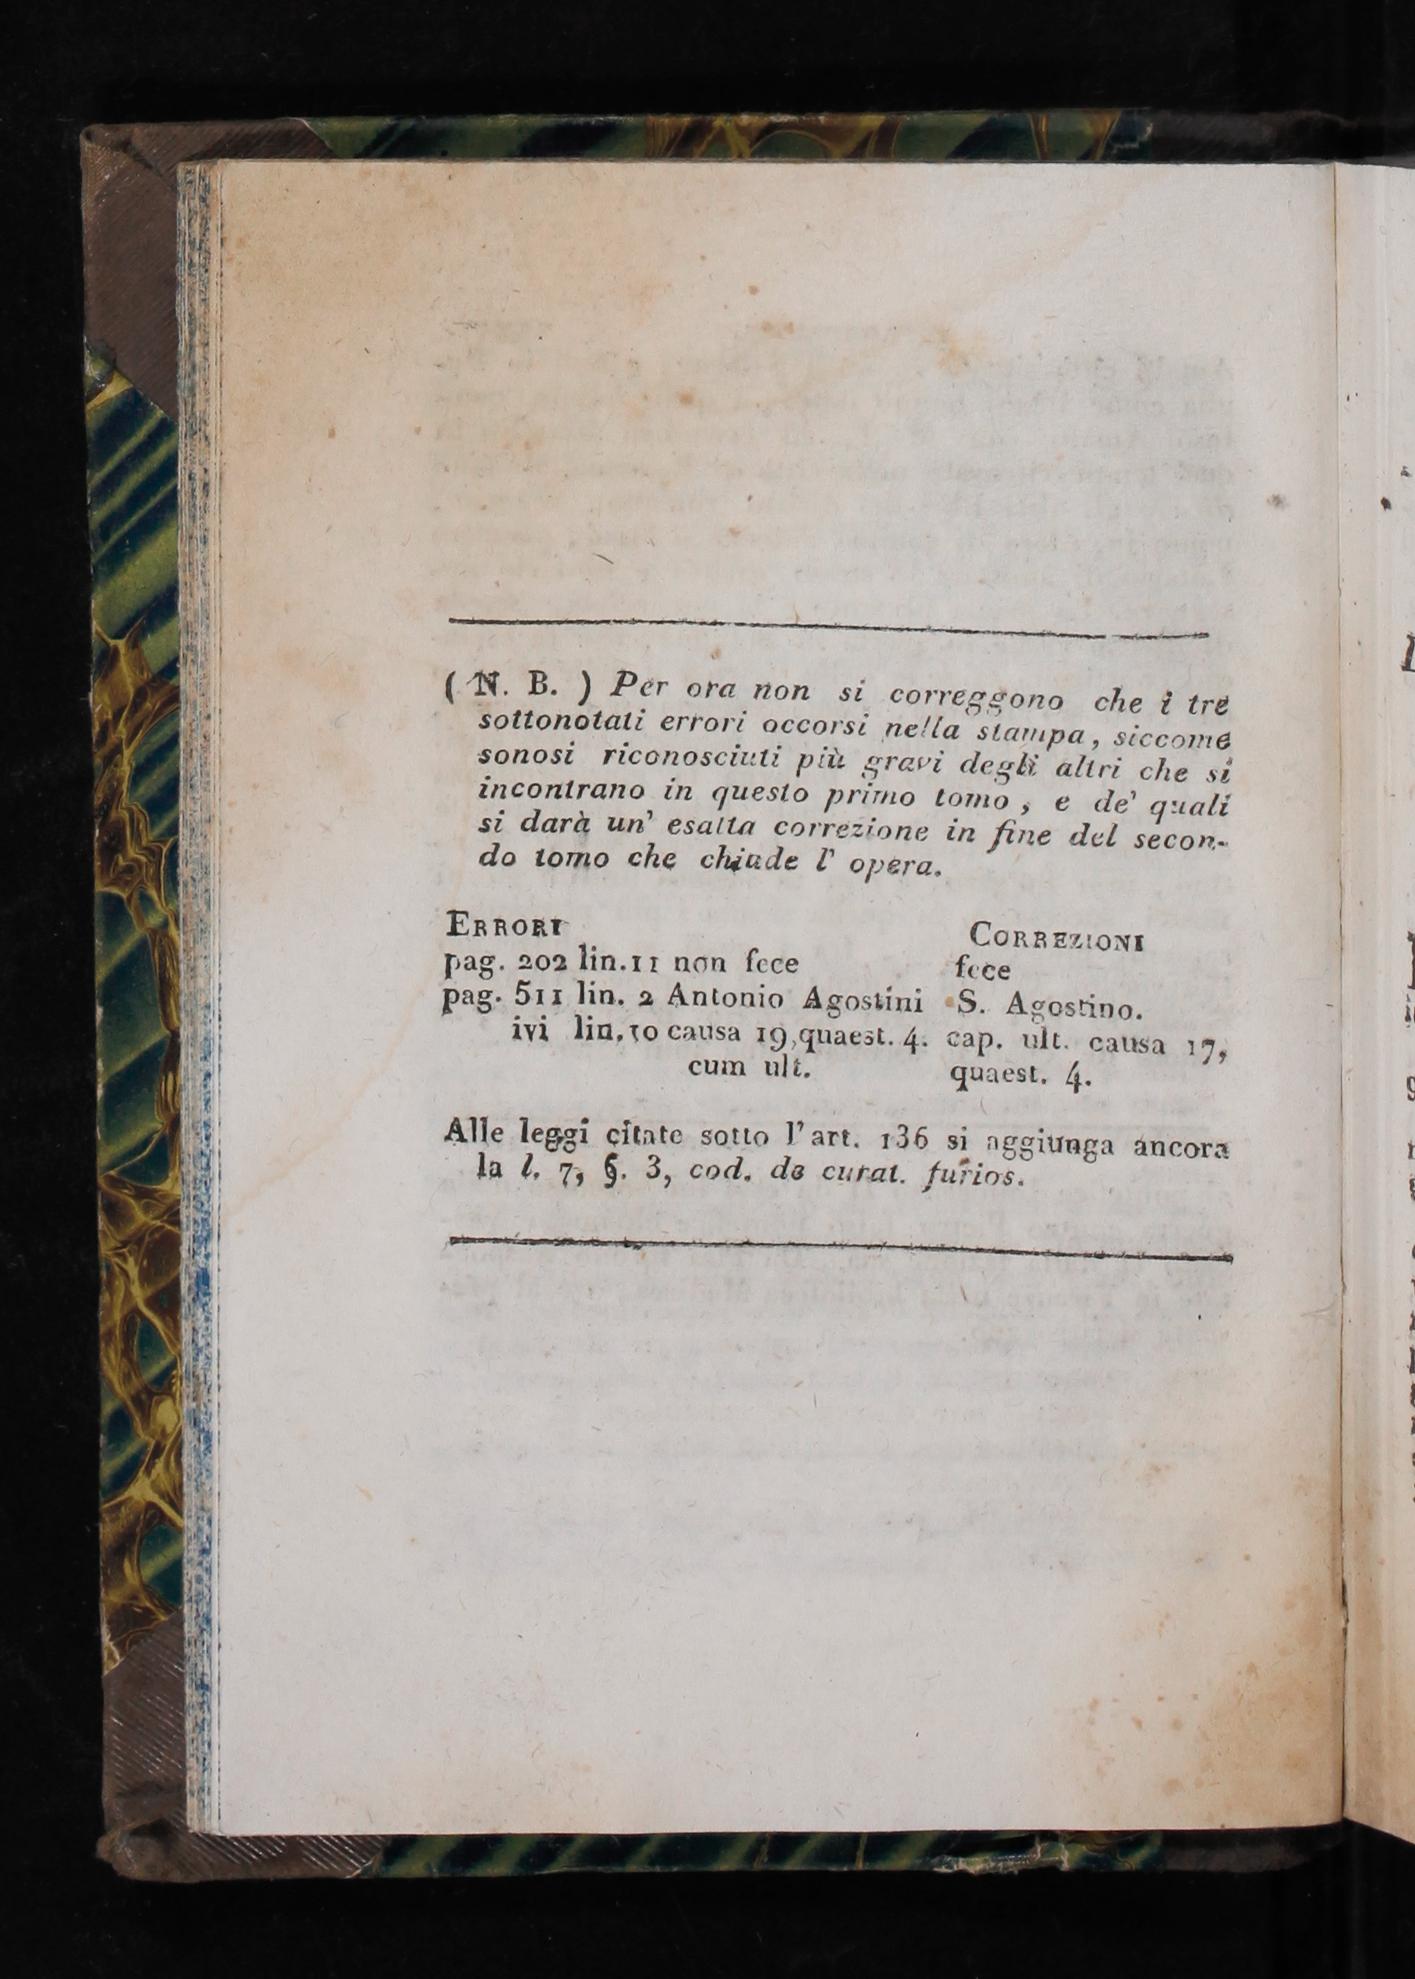 ( N. B. ) Per ora non si correggono che i tre
sottonotati errori occorsi nella stampa, siccome
sonosi riconosciuti più gravi degli altri che si
incontrano in questo primo tomo, e de' quali
si darà un' esatta correzione in fine del secon-
do tomo che chiude l' opera.
ERRORI CORREZIONI
pag. 202 lin.11 non fece fece
pag. 511 lin. 2 Antonio Agostini S. Agostino.
ivi lin.10 causa 19,quaest. 4. cap. ult. causa 17,
cum ult. quaest. 4.
Alle leggi citate sotto l'art. 136 si aggiunga ancora
la l. 7, §. 3, cod. de curat. furios.